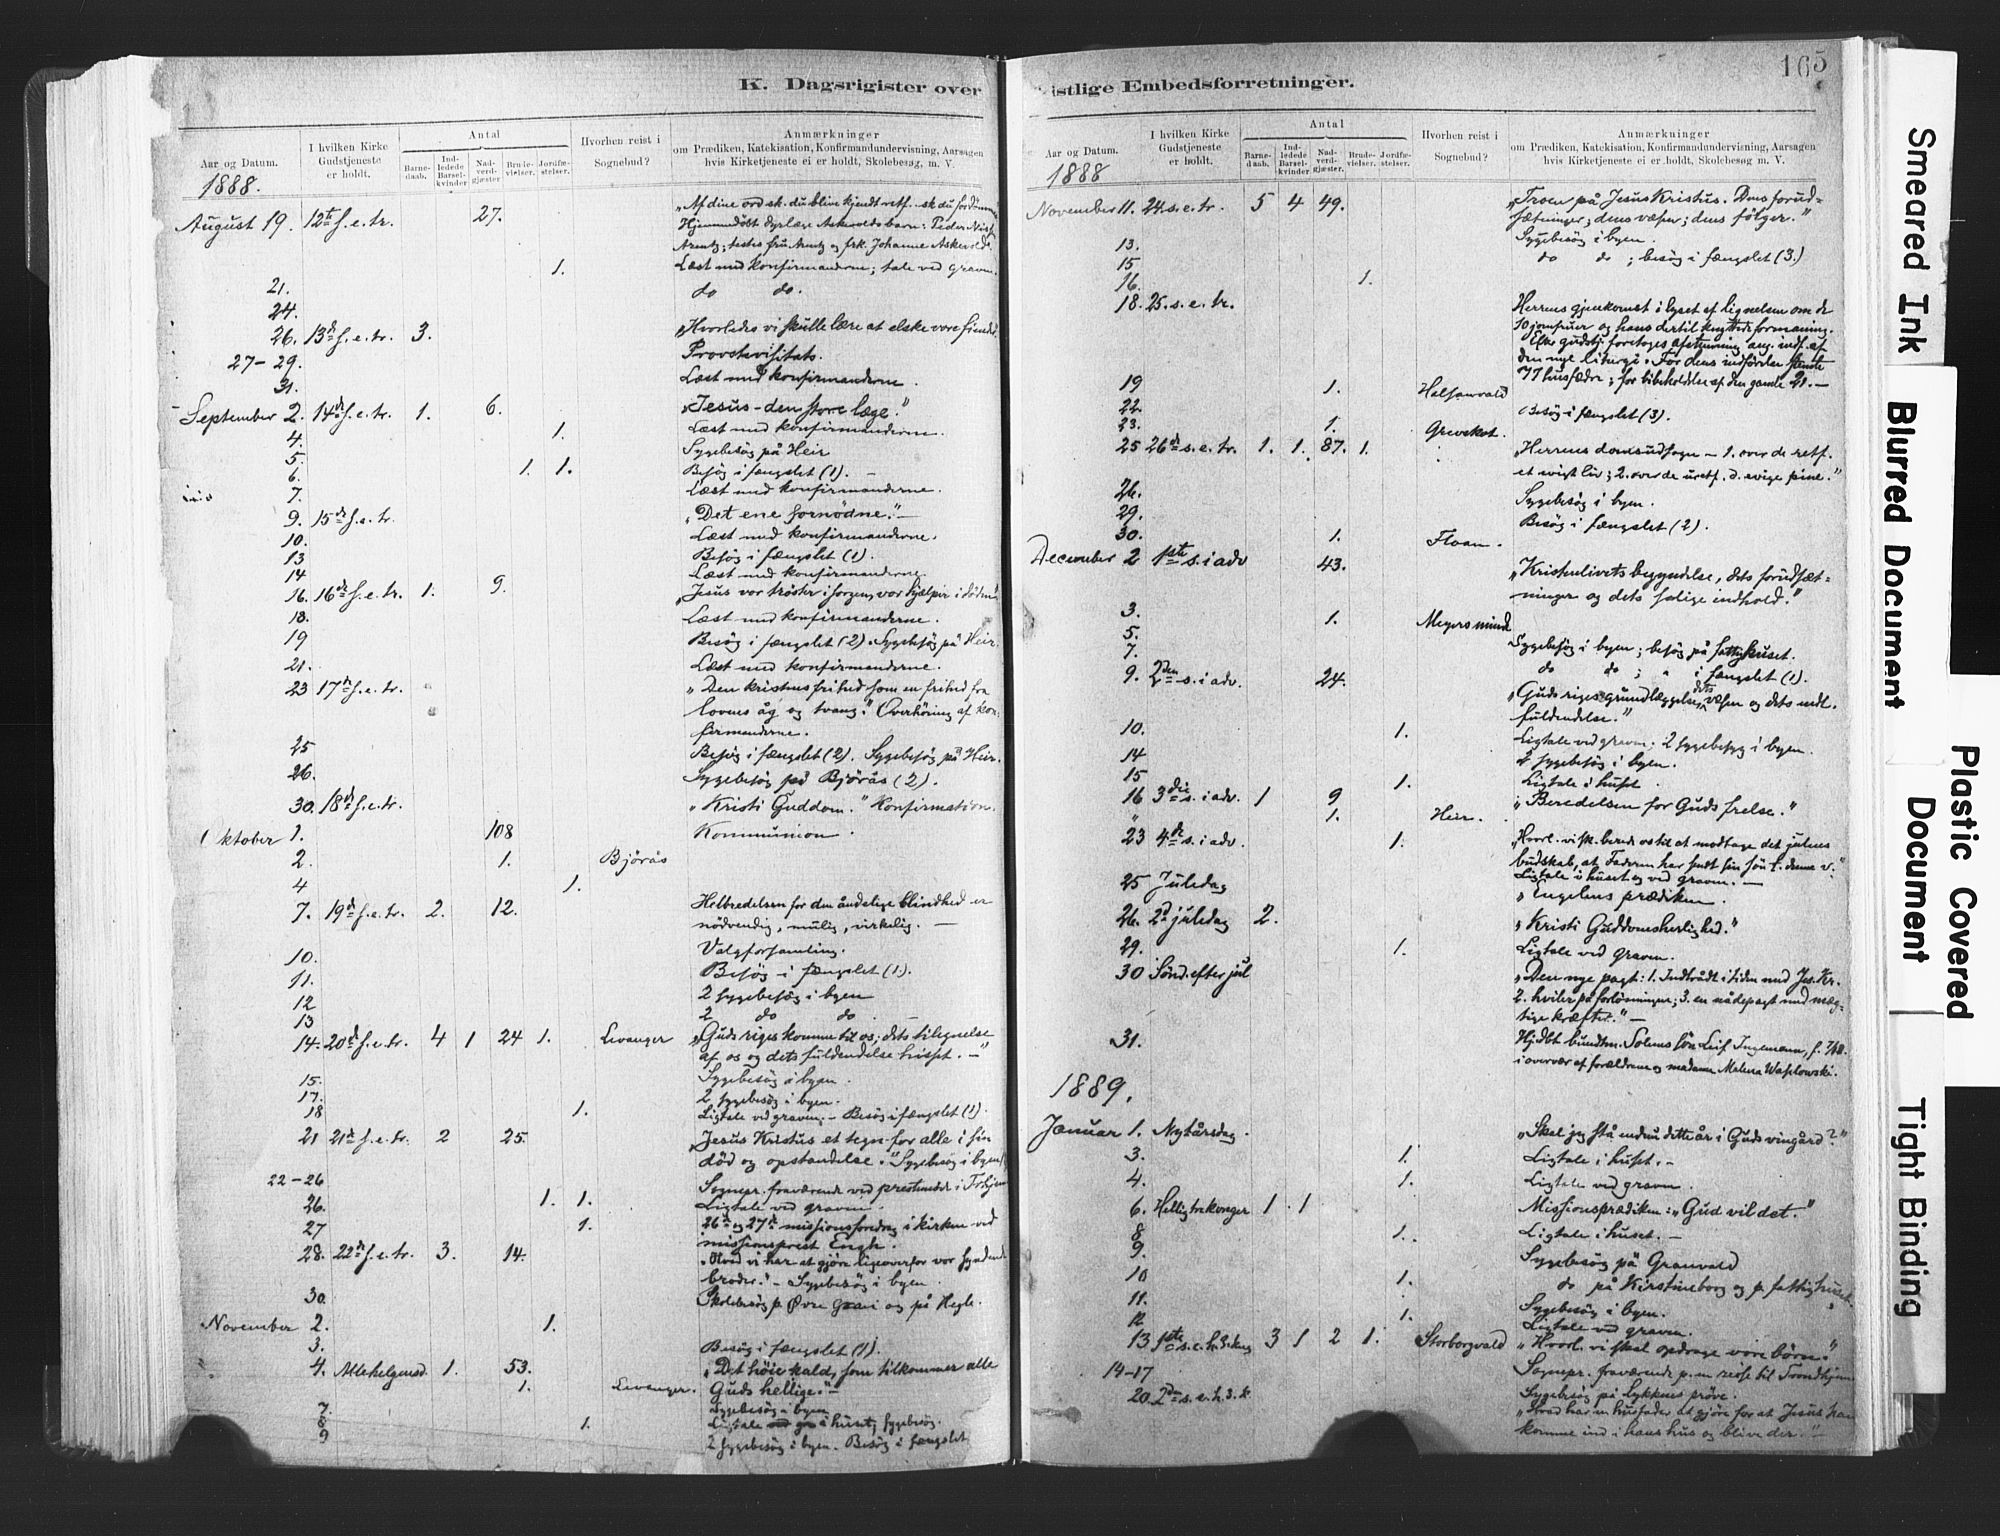 K. Dagsrigister over
Aar og Datum.
I hvilken Kirke Gudstjeneste er holdt.
Antal
Barne-daab.
Ind-ledede Barsel-kvinder
Nad-verd-gjæster
Brude-vielser.
Jordfæ-stelser.
Hvorhen reist i Sognebud?
Anmærkninger
om Prædiken, Katekisation, Konfirmandundervisning, Aarsagen
hvis Kirketjeneste ei er holdt, Skolebesøg, m. V.
1888.
August 19. 12te s.e.tr. 27. "Af dine ord sk. du blive kjendt retf. sk du fordømmes
Hjemmedöbt dyrlæge Askevolds barn: Peder
Arentz; testes fru Arentz og frk. Johanne Askevold.
1. Læst med konfirmanderne; tale ved graven.
21. do do.
24.
26. 13de s.e.tr. 3. "Hvorledes vi skulle lære at elske vore fiender
27-29. Provstevisitats.
31. Læst med konfirmanderne.
September 2. 14de s.e.tr. 1. 6. "Jesus - den store læge."
4. 1. Læst med konfirmanderne.
5. Sygebesög på Heir
6. 1. 1. Besög i fængslet (1). -
7. Læst med konfirmanderne.
9. 15de s.e.tr. "Det ene fornödne." -
10. Læst med konfirmanderne.
13 Besög i fængslet (1).
14 Læst med konfirmanderne
16. 16de s.e.tr. 1. 9. "Jesus vor tröster i sorgen, vor hjælper i döden"
18. Læst med konfirmanderne.
19 Besög i fængslet (2). Sygebesög på Heir.
21. Læst med konfirmanderne.
23 17de s.e.tr. "Den kristnes frihed som en frihed fra
lovens åg og tvang." Overhöring af kon-
firmanderne.
25 Besög i fængslet (2). Sygebesög på Heir.
26. Sygebesög på Björäs (2).
30. 18de s.e.tr. "Kristi Guddom." Konfirmation.
Oktober 1. 108 Kommunion.
2. 1. Björäs
4 1.
7. 19de s.e.tr. 2. 12. Helbredelsen for den åndelige blindhed er
nödvendig, mulig, virkelig. -
10. Valgforsamling.
11. Besög i fængslet (1).
12 2 sygebesög i byen
13 2 do do.
14. 20de s.e.tr. 4 1 24 1. Levanger "Guds riges komme til os; dets tilegnelse
af os og dets fuldendelse hisset. -"
15. Sygebesög i byen.
17. 2 sygebesög i byen.
18 1. Ligtale ved graven. - Besög i fængslet (1).
21 21de s.e.tr. 2 25. "Jesus Kristus et tegn for alle i sin
död og opstandelse." Sygebesög i byen
22-26 Sognepr. fraværende ved prestemöde i Trhjem
26. 1. 1. Ligtale ved graven.
27 1. 26de og 27de missionsforedrag i kirken ved
missionsprest Engh.
28. 22de s.e.tr. 3. 14. "Hvad vi har at gjöre ligeoverfor vor syndende
broder." - Sygebesög i byen.
30. Skolebesög p. Övre og på Hegle.
November 2. 1.
3. Besög i fængslet (1).
4. Allehelgensd. 1. 53. "Det höie kald, som tilkommer alle
1. Levanger. Guds hellige." -
7. Sygebesög i byen
8 1. Ligtale i huset, sygebesög.
9 2 sygebesög i byen. Besög i fængslet
165
istlige Embedsforretninger.
Aar og Datum.
I hvilken Kirke Gudstjeneste er holdt.
Antal
Barne-daab.
Ind-ledede Barsel-kvinder
Nad-verd-gjæster
Brude-vielser.
Jordfæ-stelser.
Hvorhen reist i Sognebud?
Anmærkninger
om Prædiken, Katekisation, Konfirmandundervisning, Aarsagen
hvis Kirketjeneste ei er holdt, Skolebesøg, m. V.
1888
November 11. 24.s.e.tr. 5 4 49. "Troen på Jesus Kristus. Dens forud-
sætninger; dens væsen; dens fölger."
13. Sygebesög i byen.
15 do do; besög i fængslet (3.)
16. 1.
18. 25.s.e.tr. Herrens gjenkomst i lyset af lignelsen om de
10 jomfruer og hans dertil knyttede formaning.
Efter gudstj. foretoges afstemning ang. indf. af
den nye liturgi. For dens indförelse stemte
77 husfædre; for bibeholdelse af den gamle 21. -
19 1. Halsanvald
22. Besög i fængslet (3).
23. 1. Grevskot.
25 26de s.e.tr. 1. 1. 87. 1. "Herrens domsudsagn - 1. over de retf.
et evigt liv; 2. over de uretf. d. evige pine."
26. Sygebesög i byen.
29. Besög i fængslet (2).
30. 1. Floan.
December 2 1ste s. i adv 43. "Kristenlivets begyndelse, dets forudsæt-
ninger og dets salige indhold."
3. 1. Meyersminde
5. Sygebesög i byen; besög på fattighuset.
7. do do; " i fængslet (1).
9. 2den s. i adv. 24. "Guds riges grundlæggelse, dets væsen og dets endl.
fuldendelse."
10. 1. Ligtale ved graven; 2 sygebesög i byen.
14 2 sygebesög i byen.
15 1. Ligtale i huset.
16 3die s. i adv. 1 9 "Beredelsen for Guds frelse."
" 1. Heir.
23 4de s. i adv. 1. "Hvorl. vi sk. berede os til at modtage det julens
budskab, at Faderen har sendt sin Sön t. denne v."
Ligtale i huset og ved graven. -
25 Juledag "Engelens prædiken.
26. 2d juledag 2. "Kristi Guddomsherlighed."
29. 1. Ligtale ved graven.
30 Sönd. efter jul "Den nye pagt: 1. Indtrådt i tiden med Jes. Kr.
2. hviler på forlösningen; 3. en nådepagt med mæg-
tige kræfter." -
31. Hjdbt bundtm. Solems sön Leif Ingemann, f. 7/12.
i overvær af forældrene og madame Malena Waslowski.
1889.
Januar 1. Nytårsdag. "Skal jeg stå endnu dette år i Guds vingård?"
3. 1. Ligtale i huset. -
4. 1. Ligtale ved graven.
6. Helligtrekonger 1 1 Missionsprædiken: "Gud vil det."
8 1. Ligtale i huset. -
9. Sygebesög på Granvald
10 1. do på Kirstineborg og p. fattighuset.
11. Sygebesög i byen.
12 1. Ligtale ved graven.
13 1ste s.e.h.3.kong 3 1 2 1. Storborgvald "Hvorl. vi skal opdrage vore börn."
14-17 Sognepr. fraværende p. en reise til Trondhjem
Sygebesög på Lykkens pröve.
20. 2den s.e.h.3.k. "Hvad har en husfader at gjöre for at Jesus kan
komme ind i hans hus og blive der." -
Smeared Ink
Blurred Document
Plastic Covered Document
Tight Binding